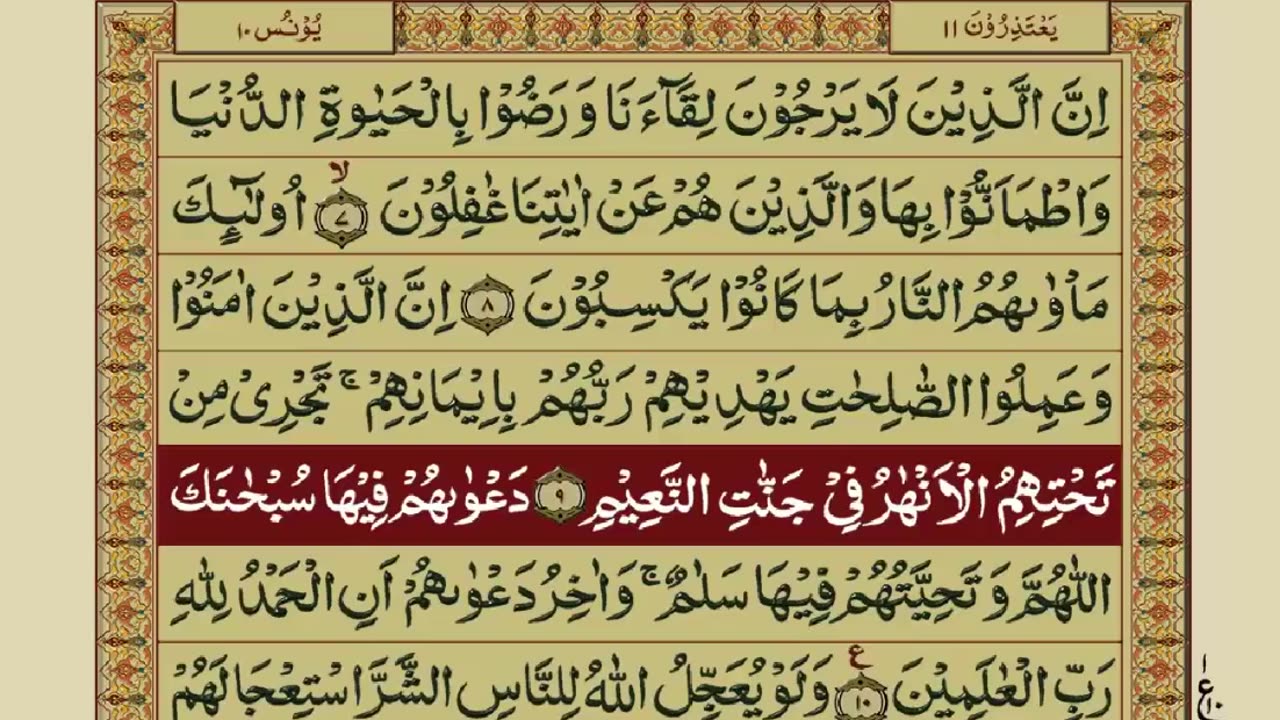 یَعْتَذِرُوْنَ ۱۱
یُوْنُس ۱۰
اِنَّ الَّذِیْنَ لَا یَرْجُوْنَ لِقَآءَنَا وَ رَضُوْا بِالْحَیٰوةِ الدُّنْیَا
وَاطْمَاَنُّوْا بِهَا وَالَّذِیْنَ هُمْ عَنْ اٰیٰتِنَا غٰفِلُوْنَ ۙ﴿۷﴾ اُولٰٓئِكَ
مَاْوٰىهُمُ النَّارُ بِمَا كَانُوْا یَكْسِبُوْنَ ﴿۸﴾ اِنَّ الَّذِیْنَ اٰمَنُوْا
وَ عَمِلُوا الصّٰلِحٰتِ یَهْدِیْهِمْ رَبُّهُمْ بِاِیْمَانِهِمْ ۚ تَجْرِیْ مِنْ
تَحْتِهِمُ الْاَنْهٰرُ فِیْ جَنّٰتِ النَّعِیْمِ ﴿۹﴾ دَعْوٰىهُمْ فِیْهَا سُبْحٰنَكَ
اللّٰهُمَّ وَ تَحِیَّتُهُمْ فِیْهَا سَلٰمٌ ۚ وَ اٰخِرُ دَعْوٰىهُمْ اَنِ الْحَمْدُ لِلّٰهِ
رَبِّ الْعٰلَمِیْنَ ﴿۱۰﴾ ع وَلَوْ یُعَجِّلُ اللّٰهُ لِلنَّاسِ الشَّرَّ اسْتِعْجَالَهُمْ
۱
ع
۱۰